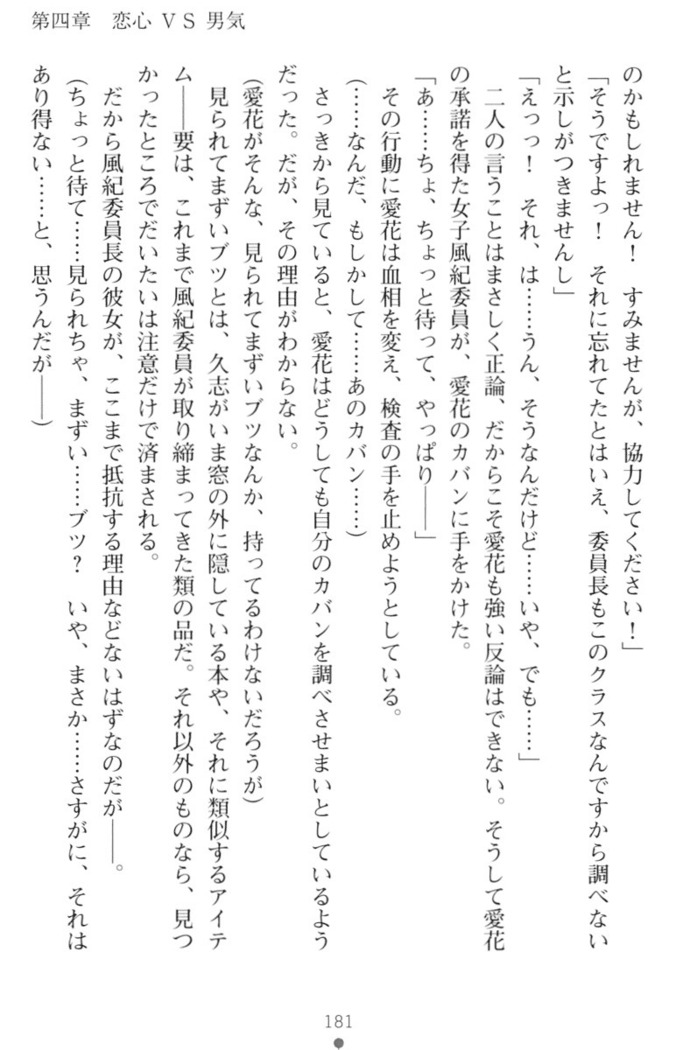 第四章　恋心 VS 男気
のかもしれません！　すみませんが、協力してください！」
「そうですよっ！　それに忘れてたとはいえ、委員長もこのクラスなんですから調べない
と示しがつきませんし」
「えっっ！　それ、は……うん、そうなんだけど……いや、でも……」
　二人の言うことはまさしく正論、だからこそ愛花も強い反論はできない。そうして愛花
の承諾を得た女子風紀委員が、愛花のカバンに手をかけた。
「あ……ちょ、ちょっと待って、やっぱり――」
　その行動に愛花は血相を変え、検査の手を止めようとしている。
（……なんだ、もしかして……あのカバン……）
　さっきから見ていると、愛花はどうしても自分のカバンを調べさせまいとしているよう
だった。だが、その理由がわからない。
（愛花がそんな、見られてまずいブツなんか、持ってるわけないだろうが）
　見られてまずいブツとは、久志がいま窓の外に隠している本や、それに類似するアイテ
ム――要は、これまで風紀委員が取り締まってきた類の品だ。それ以外のものなら、見つ
かったところでだいたいは注意だけで済まされる。
　だから風紀委員長の彼女が、ここまで抵抗する理由などないはずなのだが――。
（ちょっと待て……見られちゃ、まずい……ブツ？　いや、まさか……さすがに、それは
あり得ない……と、思うんだが――）
181